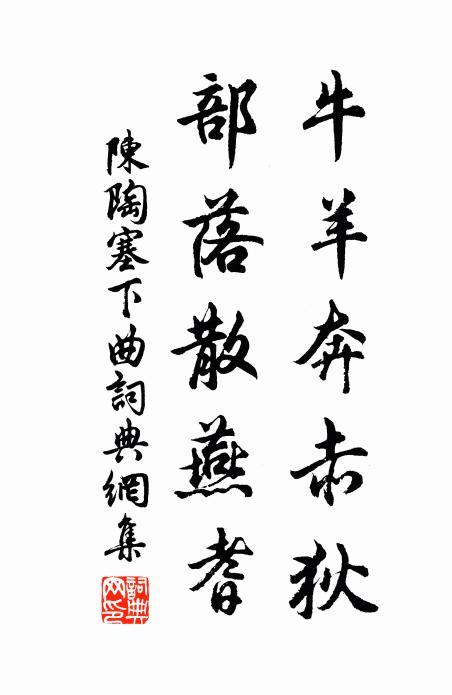 牛羊奔赤狄
部落散燕耆
陳陶塞下曲詞典網集
詞典网印